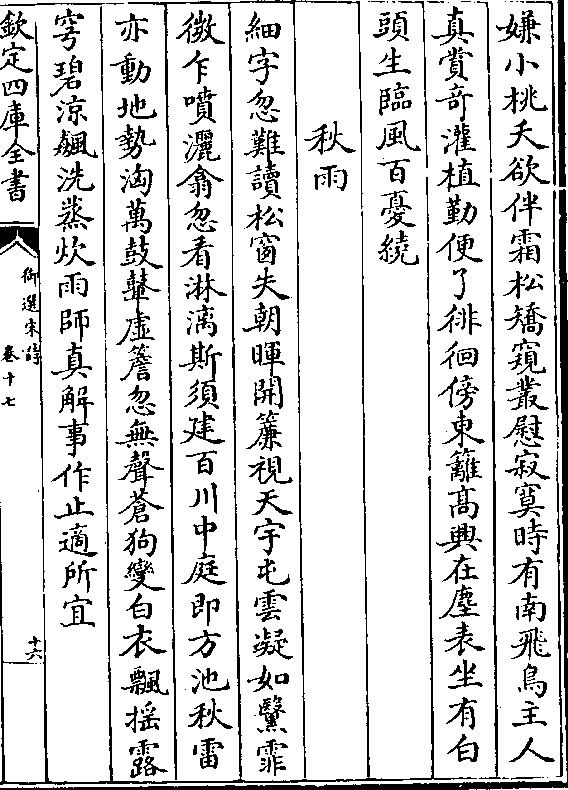 嫌小桃夭欲伴霜松矯窺叢慰寂寞時有南飛鳥主人
真賞竒灌植勤便了徘徊傍東籬高興在塵表坐有白
頭生臨風百憂繞
秋雨
細字忽難讀松窗失朝暉開簾視天宇屯雲凝如黳霏
微乍噴灑翕忽看淋漓斯須建百川中庭即方池秋雷
亦動地勢洶萬鼓鼙虛簷忽無聲蒼狗變白衣飄揺露
穹碧涼飇洗蒸炊雨師真解事作止適所宜
欽定四庫全書
御選宋詩
卷十七
十六